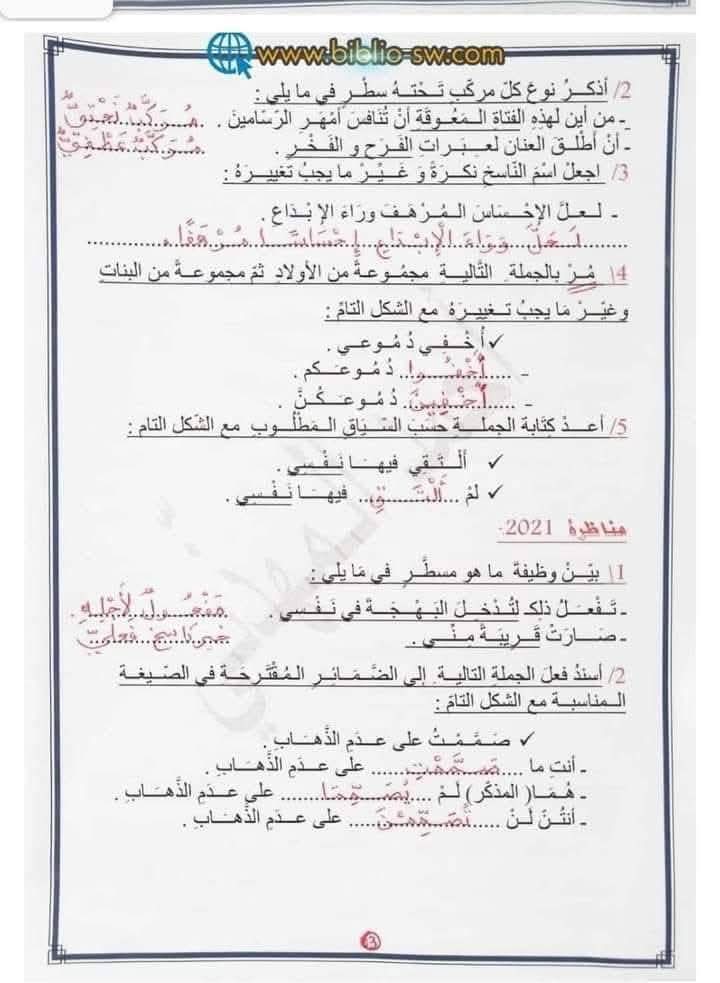 www.biblio-sw.com
2/ أذكـــرُ نوعَ كلّ مركّب تَـحْتـهُ سطْـر في ما يلي :
- من أين لهذِهِ الفتاةِ الـمَعُـوقَةِ أنْ تُنَافسَ أمْهَـر الرّسّامينَ . مُـركّبٌ نَعْتِيٌّ
- أنْ أطْلـقَ العنان لعـبَـرات الفَرَح و الفَخْـر . مُـركّبٌ عَطْفِيٌّ
3/ اجعلْ اسْمَ النّاسخِ نكـرَةً وَ غَـيّـرْ ما يجبُ تغييـرَهُ :
- لـعـلَّ الإحْـسَاسَ الـمُـرْهَـفَ ورَاءَ الإبْـدَاعِ .
لَـعَـلَّ وَرَاءَ الْإِبْـدَاعِ إِحْسَاسًـا مُـرْهَفًا.
4\ مُـرْ بالجملـةِ التّاليـةِ مجمُـوعةً من الأولادِ ثمّ مجموعـةً من البناتِ
وغيّـرْ مَا يجبُ تـغييـرَهُ مع الشكل التامّ :
✓ أُخْـفِـي دُمُـوعـي .
- أَخْفُـوا دُمُـوعَـكم .
- أَخْـفِينَ دُمُـوعَـكُـنَّ .
5/ أعـدْ كتَابةَ الجملـةِ حَسَبَ السّـيَاقِ الـمَطْلُـوبِ مع الشّكل التام :
✓ ألْـتَـقِي فيهَـا نَفْـسِي .
✓ لمْ أَلْـتَـقِ فيهَـا نَفْـسِي .
مناظرة 2021:
1\ بيّـنْ وظيفةَ ما هو مسطّـر في مَا يلي :
- تَـفْـعَـلُ ذلِكَ لتُـدْخِـلَ البَـهْجَـةَ في نَـفْـسِي . مَفْعُـولٌ لِأَجْلِهِ
- صَـارَتْ قَـرِيبَـةً مِنّـي . خبر ناسخ فعليّ
2/ أسندْ فعلَ الجملةِ التاليـةِ إلى الضّمَـائـر الـمُقْتَـرحَـة في الصّيغةِ
الـمناسبَـة مع الشكل التامّ :
✓ صَـمَّـمْـتُ على عـدَمِ الذَّهَـابِ .
- أنتِ ما صَـمَّمْتِ على عَـدَمِ الذَّهَـابِ .
- هُـمَـا( المذكّر) لَـمْ يُصَـمِّمَا على عَـدَمِ الذَّهَـابِ .
- أنتُـنّ لَـنْ تُصَـمِّمْـنَ على عَـدَمِ الذَّهَـابِ .
3